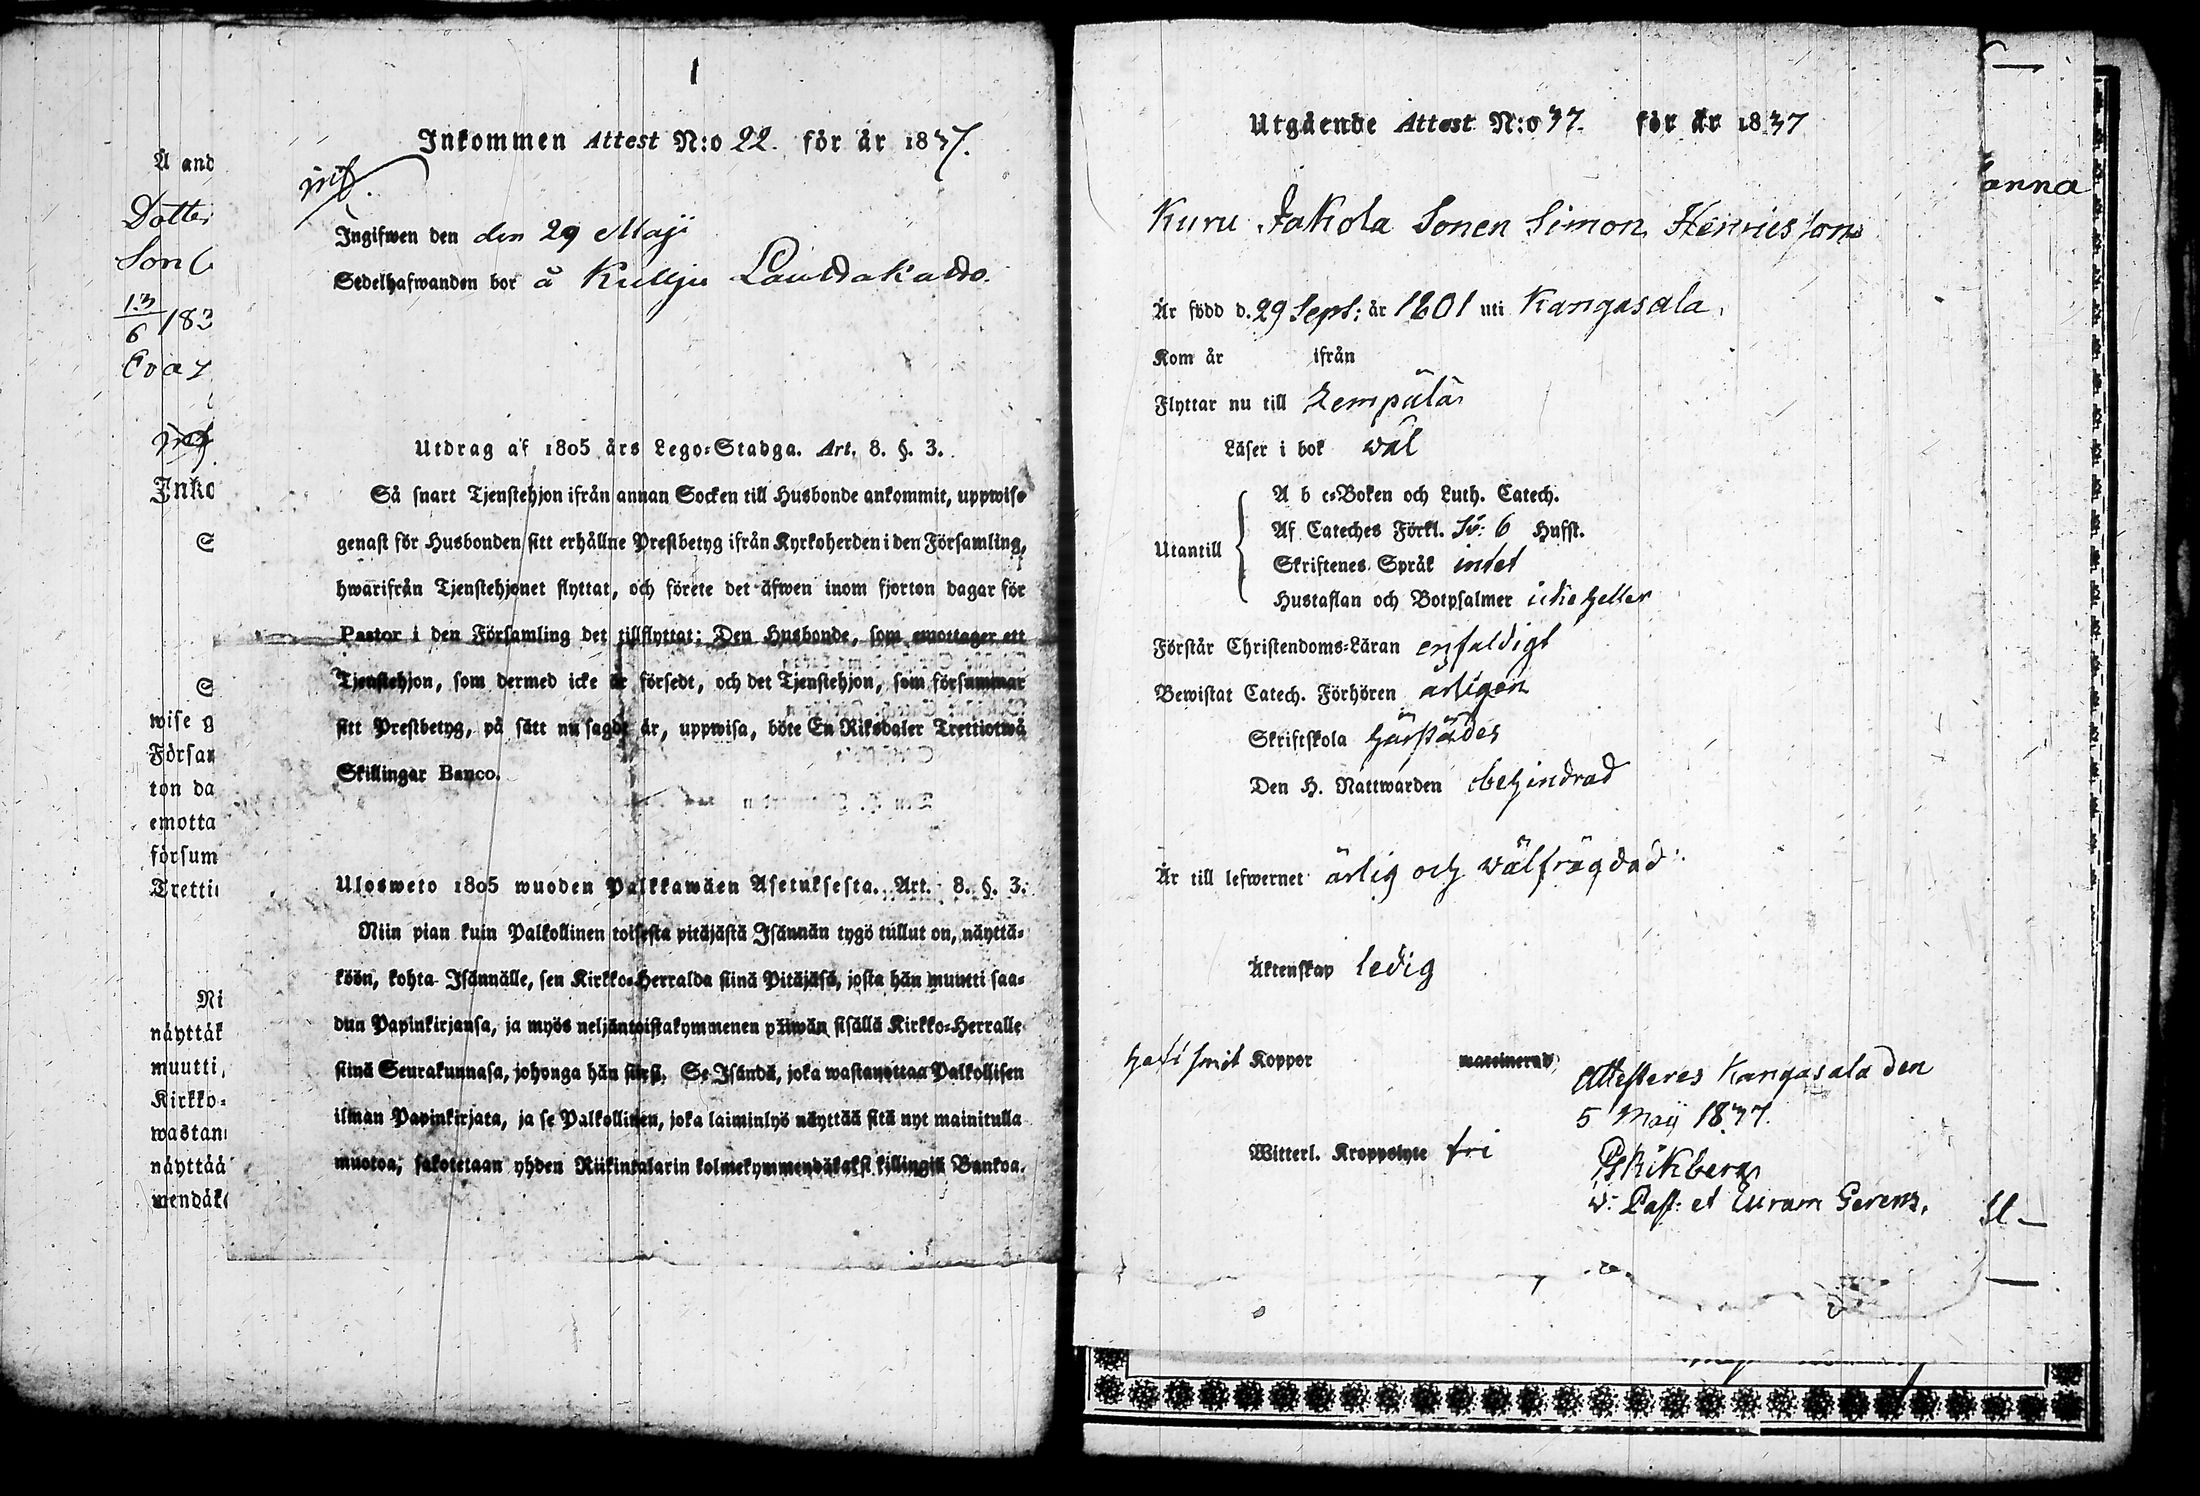 1
Inkommen Attest N:o 22. för år 1837.
Ingifwen den den 29 Maji
Sedelhafwanden bor å Kulju Lauttakatto.
Utdrag af 1805 års Lego-Stadga. Art. 8. §. 3.
Så snart Tjenstehjon ifrån annan Socken till Husbonde ankommit, uppwise
genast för Husbonden sitt erhållne Prestbetyg ifrån Kyrkoherden i den Församling,
hwarifrån Tjenstehjonet flyttat, och förete det äfwen inom fjorton dagar för
Pastor i den Församling det tillflyttat; Den Husbonde, som emottager ett
Tjenstehjon, som dermed icke är försedt, och det Tjenstehjon, som försummar
sitt Prestbetyg, på sätt nu sagdt är, uppwisa, böte En Riksdaler Trettiotwå
Skillingar Banco.
Ulosweto 1805 wuoden Palkkawäen Asetuksesta. Art. 8. §. 3.
Niin pian kuin Palkollinen toisesta pitäjästä Isännän tygö tullut on, näyttä-
köön, kohta Isännälle, sen Kirkko-Herralda siinä Pitäjäsä, josta hän muutti saa-
dun Papinkirjansa, ja myös neljäntoistakymmenen päiwän sisällä Kirkko-Herralle
siinä Seurakunnasa, johonga hän siirsi. Se Isändä, joka wastanottaa Palkollisen
ilman Papinkirjata, ja se Palkollinen, joka laiminlyö näyttää sitä nyt mainitulla
muotoa, sakotetaan yhden Riikintalarin kolmekymmendäkaksi killingiä Bankoa.
Å and
Dotter
Son
13/6 183
Eva
Inko
S
S
wise g
Försam
ton da
emotta
försum
Trettio
Ni
näyttäk
muutti,
Kirkko-
wastan
näyttää
mendäk
Utgående Attest N:o 37. för år 1837
Kuru Jakola Sonen Simon Henricsson
Är född d. 29 Sept: år 1801 uti Kangasala,
Kom år ifrån
Flyttar nu till Lempälä
Läser i bok wäl
Utantill
A b c-Boken och Luth. Catech.
Af Cateches Förkl. Sv: 6 Hufst.
Skriftenes Språk intet
Hustaflan och Botpsalmer icke heller
Förstår Christendoms-Läran enfaldigt
Bewistat Catech. Förhören årligen
Skriftskola härstädes
Den H. Nattwarden obehindrad
Är till lefwernet ärlig och wälfrägdad
Äktenskap ledig
haft smit Koppor waccinerad
Attesteres Kangasala den
5 Maji 1837.
Witterl. Kroppslyte fri
v: Past: et Curam Gerens,
anna